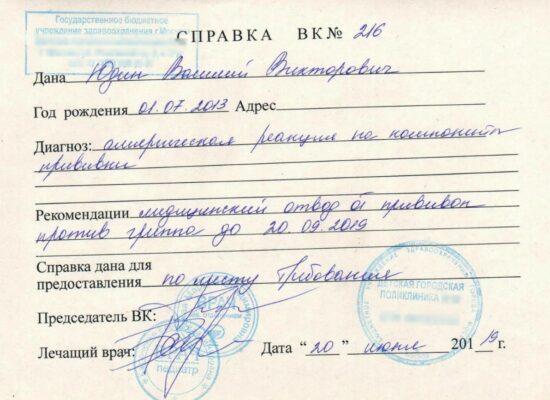 Государственное бюджетное
учреждение здравоохранения г. Мос
СПРАВКА ВК № 216
Дана Юдин Василий Викторович
Год рождения 01.07.2013 Адрес
Диагноз: аллергическая реакция на компоненты
прививки
Рекомендации медицинский отвод от прививок
против гриппа до 20.09.2019
Справка дана для
предоставления по месту требования
ДЕТСКАЯ ГОРОДСКАЯ
ПОЛИКЛИНИКА
Председатель ВК:
Лечащий врач:
педиатр
Дата "20" июня 2019 г.